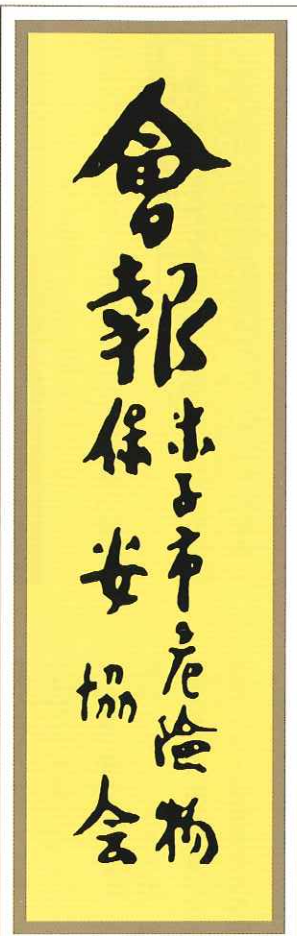 會報
米子市危険物
保安協会